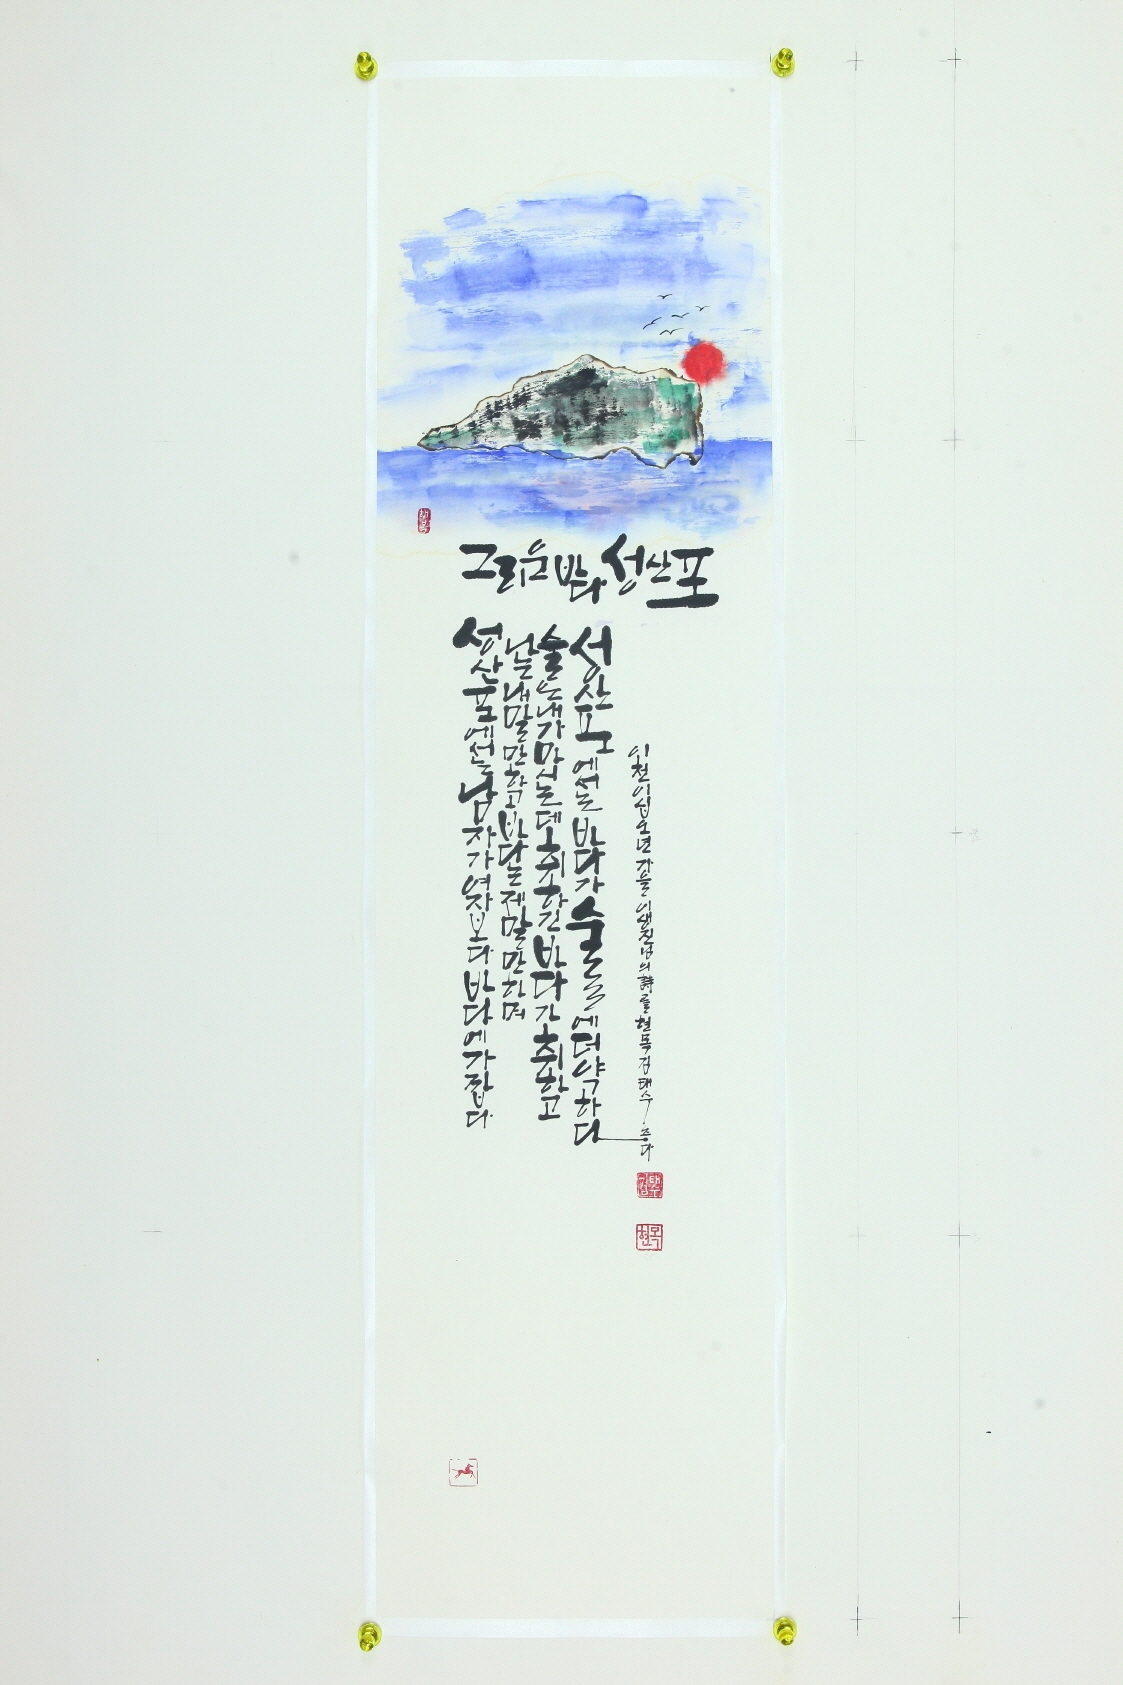 그리운 바다 성산포
성산포에서는 남자가 여자보다 바다에 가깝다
나는 내 말만 하고 바다는 제 말만 하며
술은 내가 마시는데 취하긴 바다가 취하고
성산포에서는 바다가 술에 더 약하다
이천이십오년 가을 이생진님의 詩를 현목 김태수 쓰다
현목